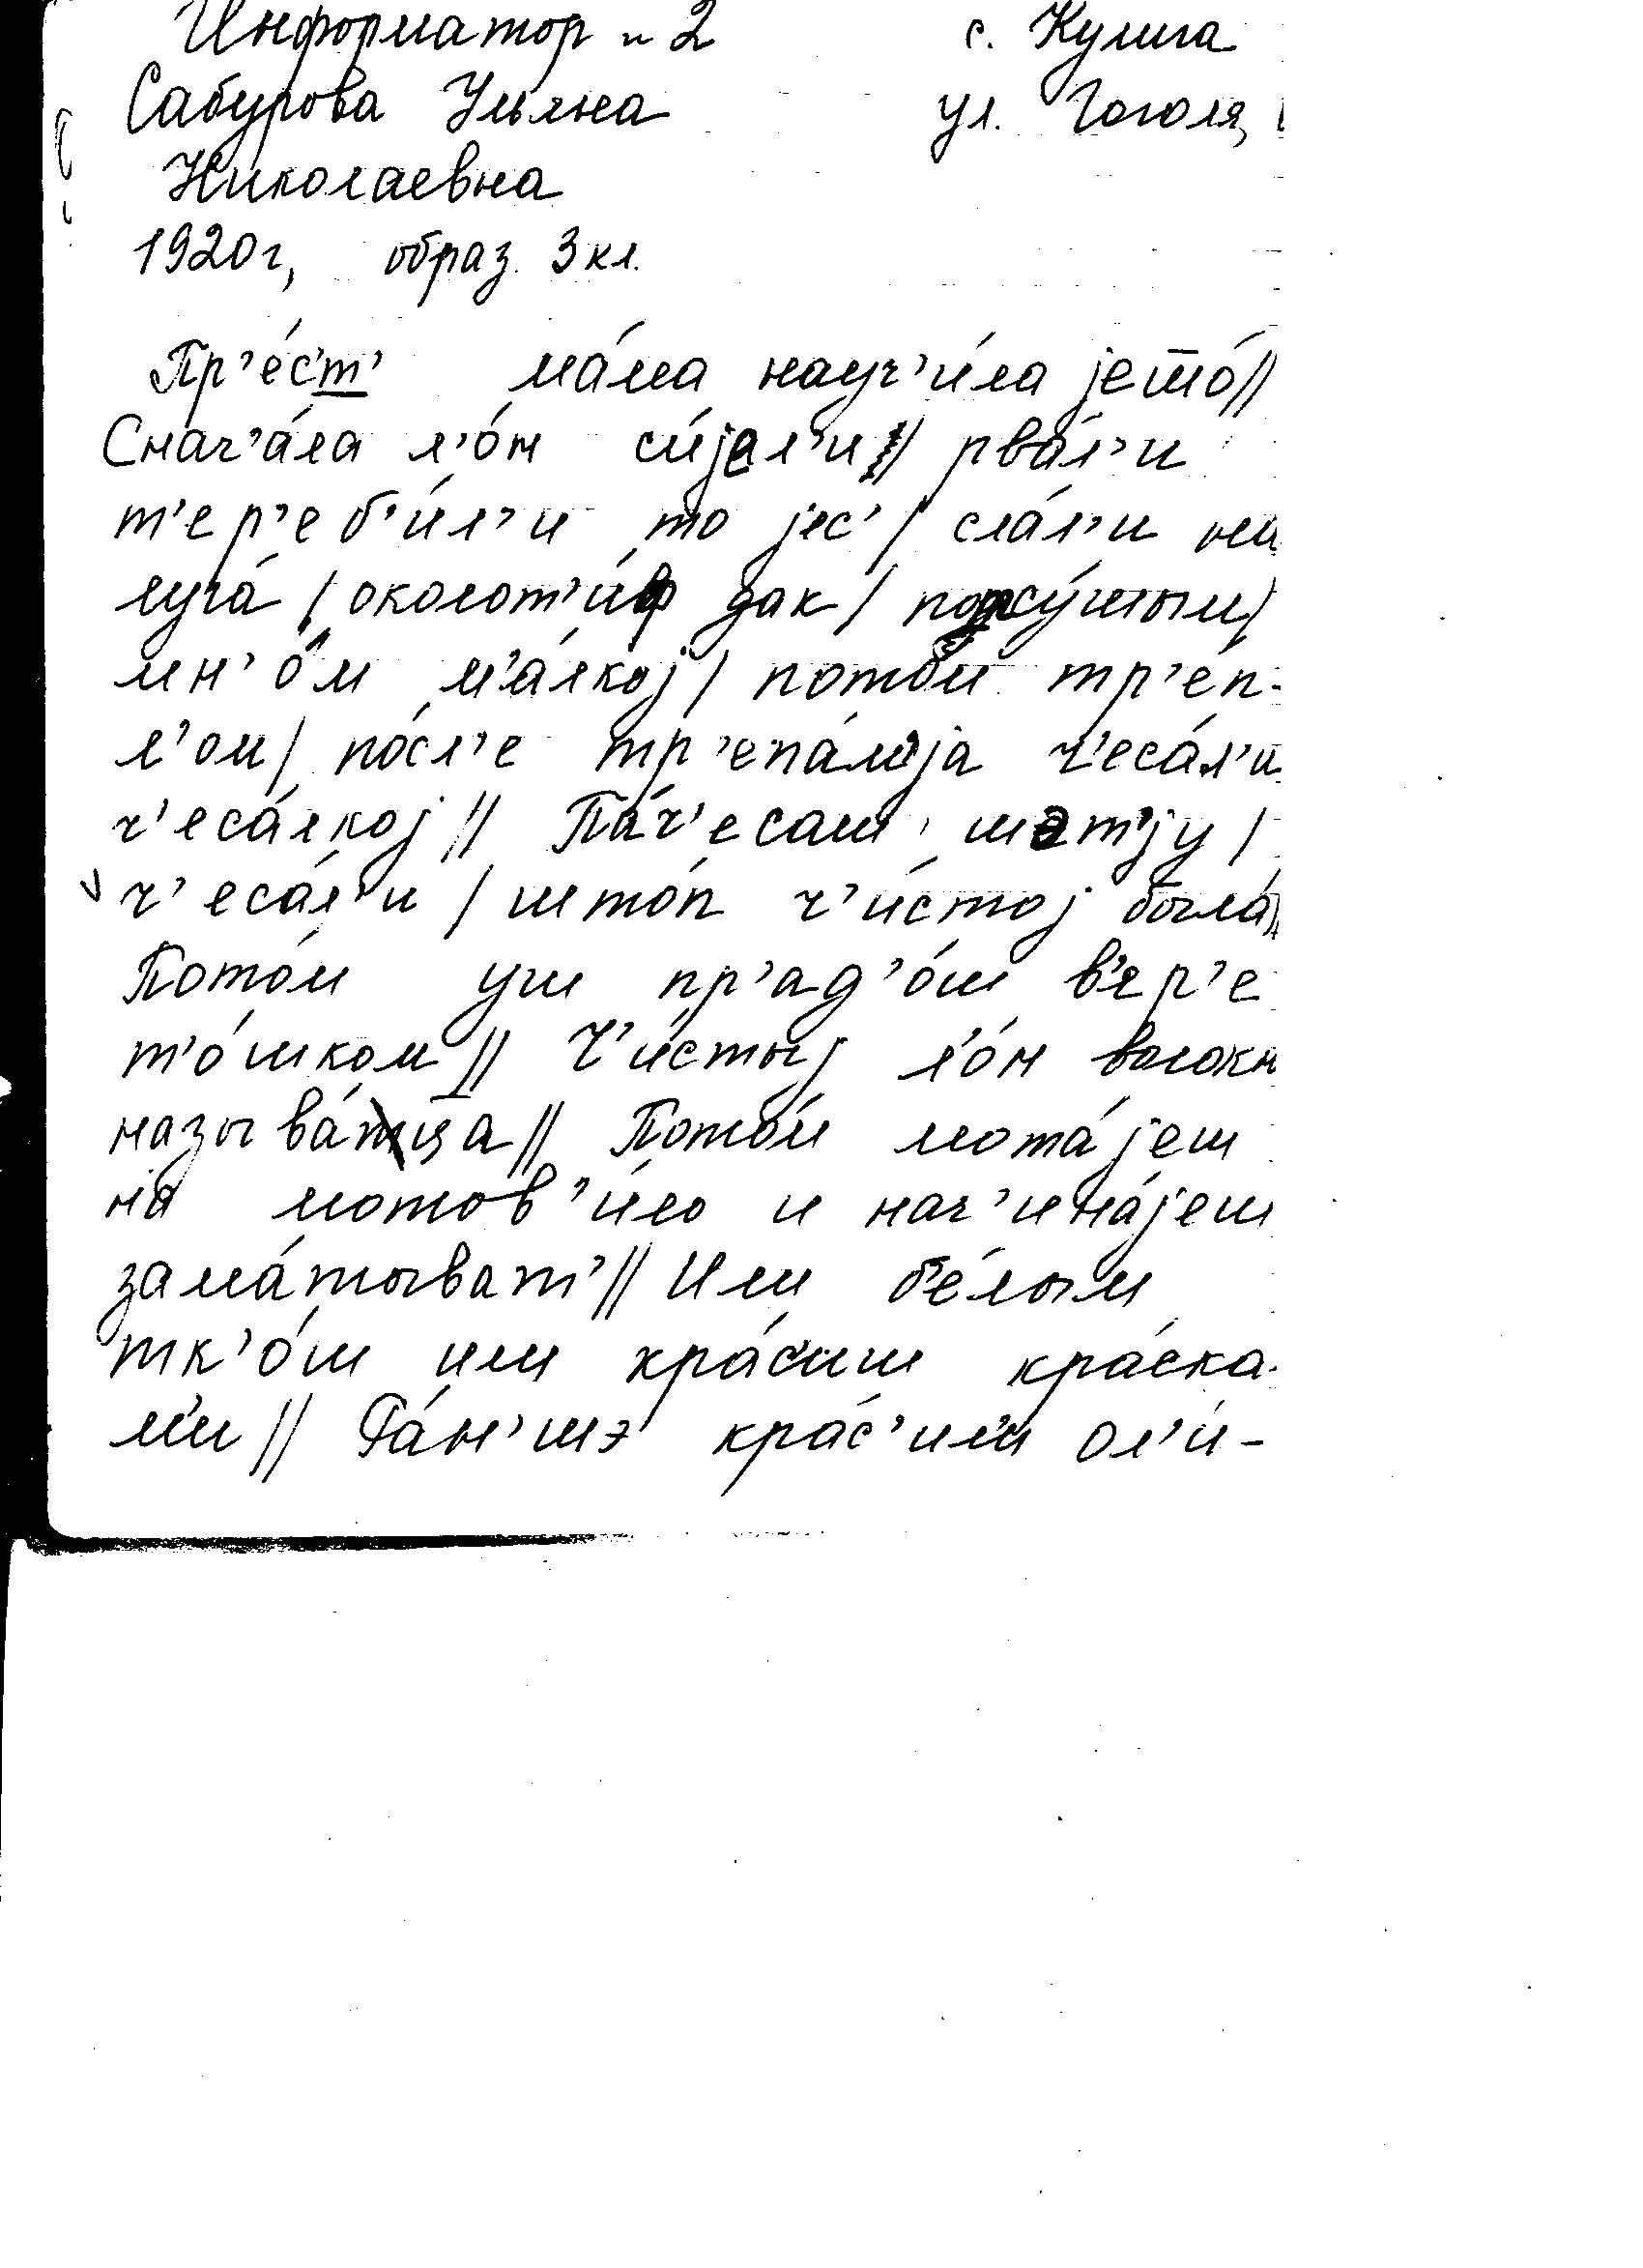 Информатор н 2 с. Кулига
Сабурова Ульяна ул. Гоголя,
Николаевна
1920г, образ. 3 кл.
Пр’е́с’т’ ма́ма науч’и́ла jето́//
Снач’а́ла л’о́н си́jал’и // рва́л’и
т’ер’еб’и́л’и то jес’ / сла́л’и на
луга́ / околот’и́ф дак / посу́шым /
мн’о́м м’а́лкоj / пото́м тр’е́п-
л’ом / по́сл’е тр’епа́лоjа ч’еса́л’и
ч’еса́лкоj // Па́ч’есаш э́т’jу /
ч’еса́л’и / што́п ч’и́стоj была́ //
Пото́м уш пр’ад’о́ш в’ер’е
т’о́шком // Ч’и́стыj л’о́н волокн
называ́ца // Пото́м мота́jеш
на мотов’и́ло и нач’ина́jеш
зама́тыват’ // Или бе́лым
тк’о́ш или кра́сиш кра́ска-
м’и // Ра́н’шэ кра́с’ил’и ол’и-